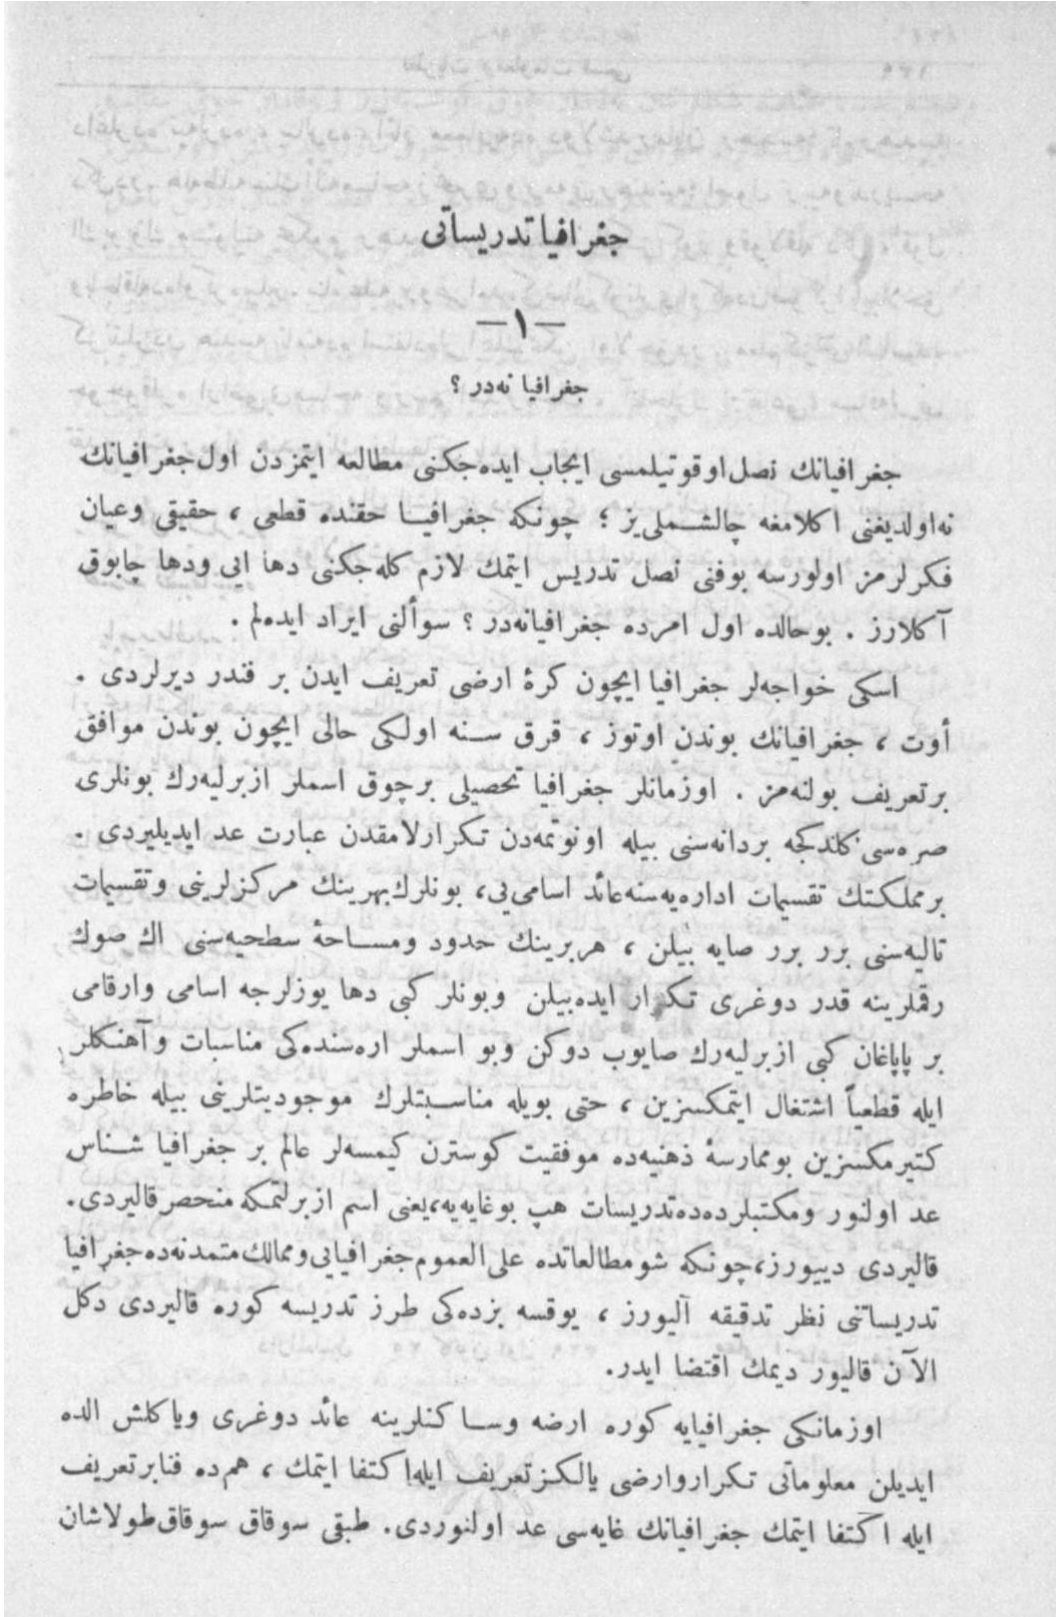 جغرافیا تدریساتی
— ١ —
جغرافیا نه‌در ؟
جغرافیانك نصل اوقوتیلمسی ایجاب ایده‌جكنی مطالعه ایتمزدن اول جغرافیانك
نه‌اولدیغنی اكلامغه چالشملی‌یز ؛ چونكه جغرافیا حقنده قطعی ، حقیقی وعیان
فكرلرمز اولورسه بوفنی نصل تدریس ایتمك لازم كله‌جكنی دها ایی ودها چابوق
آكلارز . بوحالده اول امرده جغرافیانه‌در ؟ سوألنی ایراد ایده‌لم .
اسكی خواجه‌لر جغرافیا ایچون كرهٔ ارضی تعریف ایدن بر فندر دیرلردی .
أوت ، جغرافیانك بوندن اوتوز ، قرق سنه اولكی حالی ایچون بوندن موافق
برتعریف بولنه‌مز . اوزمانلر جغرافیا تحصیلی برچوق اسملر ازبرلیه‌رك بونلری
صره‌سی كلدكجه بردانه‌سنی بیله اونوتمه‌دن تكرارلامقدن عبارت عد ایدیلیردی .
برمملكتك تقسیمات اداره‌یه‌سنه‌عائد اسامی‌یی، بونلرك‌بهرینك مركزلرینی وتقسیمات
تالیه‌سنی برر برر صایه بیلن ، هربرینك حدود ومساحهٔ سطحیه‌سنی اك صوك
رقملرینه قدر دوغری تكرار ایده‌بیلن وبونلر كبی دها یوزلرجه اسامی وارقامی
بر پاپاغان كبی ازبرلیه‌رك صایوب دوكن وبو اسملر اره‌سنده‌كی مناسبات وآهنكلر
ایله قطعیاً اشتغال ایتمكسزین ، حتی بویله مناسبتلرك موجودیتلرینی بیله خاطره
كتیرمكسزین بوممارسهٔ ذهنیه‌ده موفقیت كوسترن كیمسه‌لر عالم بر جغرافیا شناس
عد اولنور ومكتبلرده‌ده‌تدریسات هپ بوغایه‌یه،یعنی اسم ازبرلتمكه منحصرقالیردی.
قالیردی دییورز،چونكه شومطالعاتده علی‌العموم‌جغرافیایی‌وممالك‌متمدنه‌ده‌جغرافیا
تدریساتنی نظر تدقیقه آلیورز ، یوقسه بزده‌كی طرز تدریسه كوره قالیردی دكل
الآن قالیور دیمك اقتضا ایدر.
اوزمانكی جغرافیایه كوره ارضه وساكنلرینه عائد دوغری ویاكلش الده
ایدیلن معلوماتی تكراروارضی یالكزتعریف ایله‌اكتفا ایتمك ، هم‌ده فنابرتعریف
ایله اكتفا ایتمك جغرافیانك غایه‌سی عد اولنوردی. طبقی سوقاق سوقاق‌طولاشان